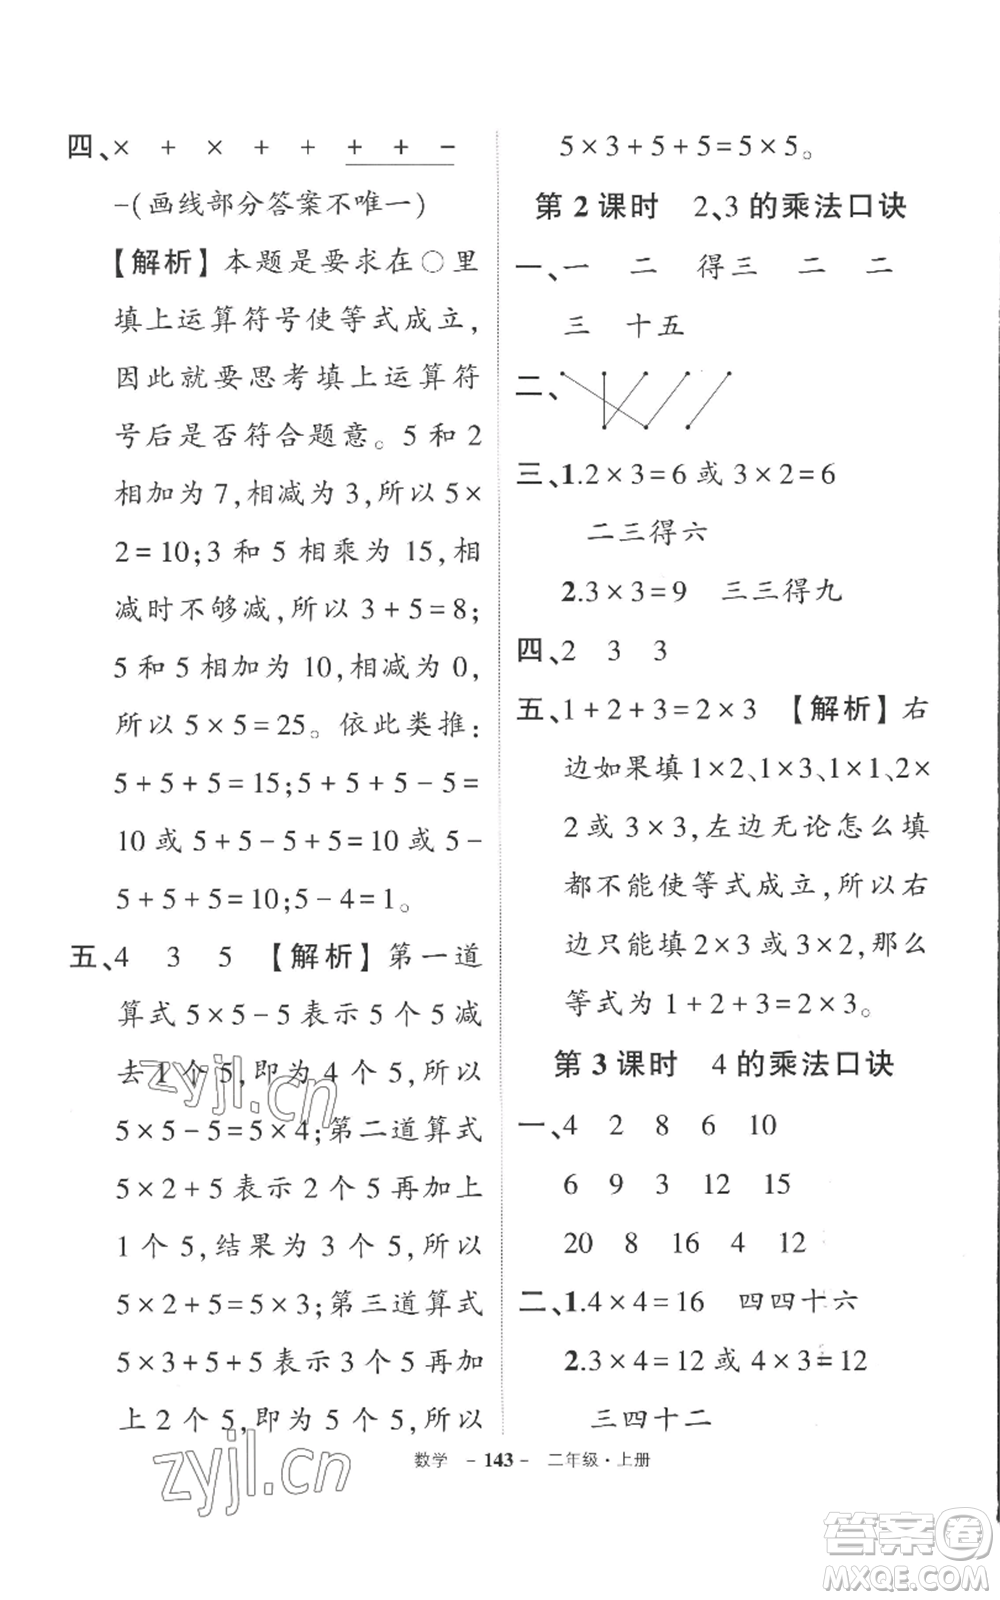 四、× + × + + + + −
−(画线部分答案不唯一)
【解析】本题是要求在○里
填上运算符号使等式成立,
因此就要思考填上运算符
号后是否符合题意。5 和 2
相加为 7,相减为 3,所以 5×
2=10;3 和 5 相乘为 15,相
减时不够减,所以 3+5=8;
5 和 5 相加为 10,相减为 0,
所以 5×5=25。依此类推:
5+5+5=15;5+5+5−5=
10 或 5+5−5+5=10 或 5−
5+5+5=10;5−4=1。
五、4 3 5 【解析】第一道
算式 5×5−5 表示 5 个 5 减
去 1 个 5,即为 4 个 5,所以
5×5−5=5×4;第二道算式
5×2+5 表示 2 个 5 再加上
1 个 5,结果为 3 个 5,所以
5×2+5=5×3;第三道算式
5×3+5+5 表示 3 个 5 再加
上 2 个 5,即为 5 个 5,所以
5×3+5+5=5×5。
第 2 课时 2、3 的乘法口诀
一、一 二 得三 二 二
三 十五
二、
三、1.2×3=6 或 3×2=6
二三得六
2.3×3=9 三三得九
四、2 3 3
五、1+2+3=2×3 【解析】右
边如果填 1×2、1×3、1×1、2×
2 或 3×3,左边无论怎么填
都不能使等式成立,所以右
边只能填 2×3 或 3×2,那么
等式为 1+2+3=2×3。
第 3 课时 4 的乘法口诀
一、4 2 8 6 10
6 9 3 12 15
20 8 16 4 12
二、1.4×4=16 四四十六
2.3×4=12 或 4×3=12
三四十二
数学 −143− 二年级·上册
zyjl.cn
zyjl.cn
答案卷
MXQE.COM